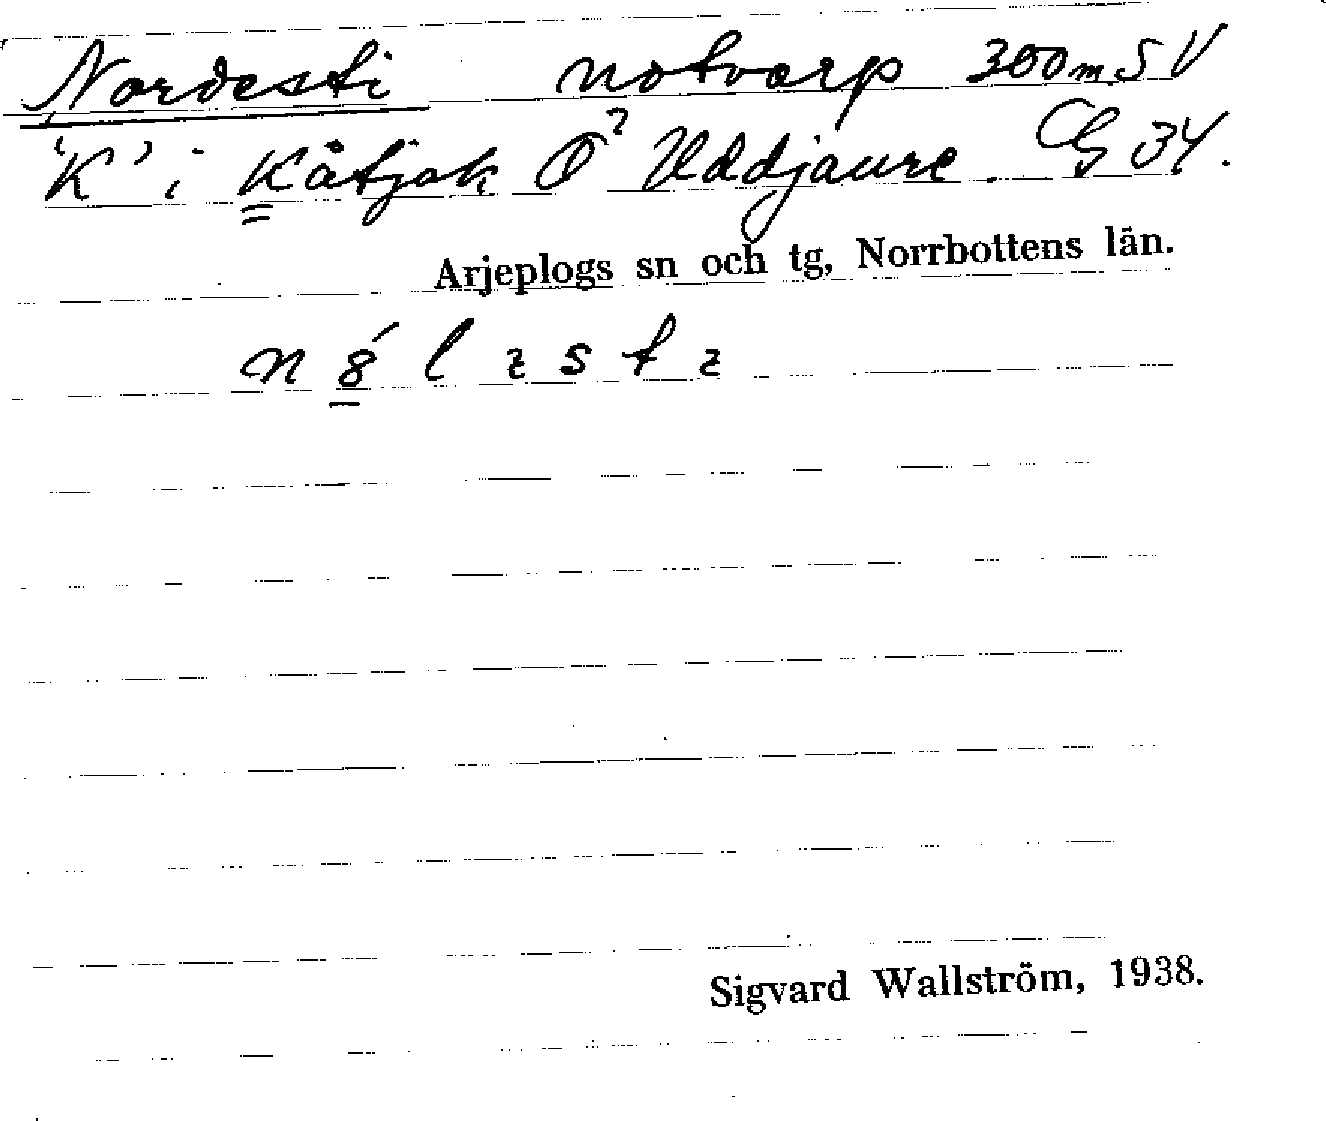 Nordesti notvarp 300 m SV
'K' i Kåtjok Ö? Uddjaure. G 34.
Arjeplogs sn och tg, Norrbottens län.
Sigvard Wallström, 1938.